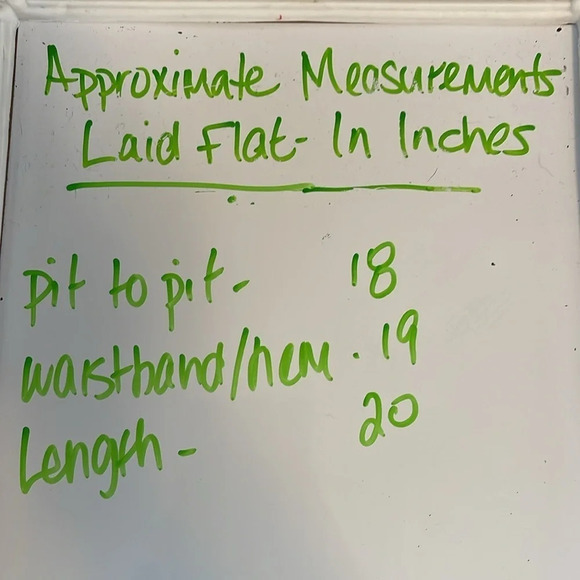 Approximate Measurements
Laid Flat - In Inches
pit to pit - 18
waistband/hem . 19
Length - 20